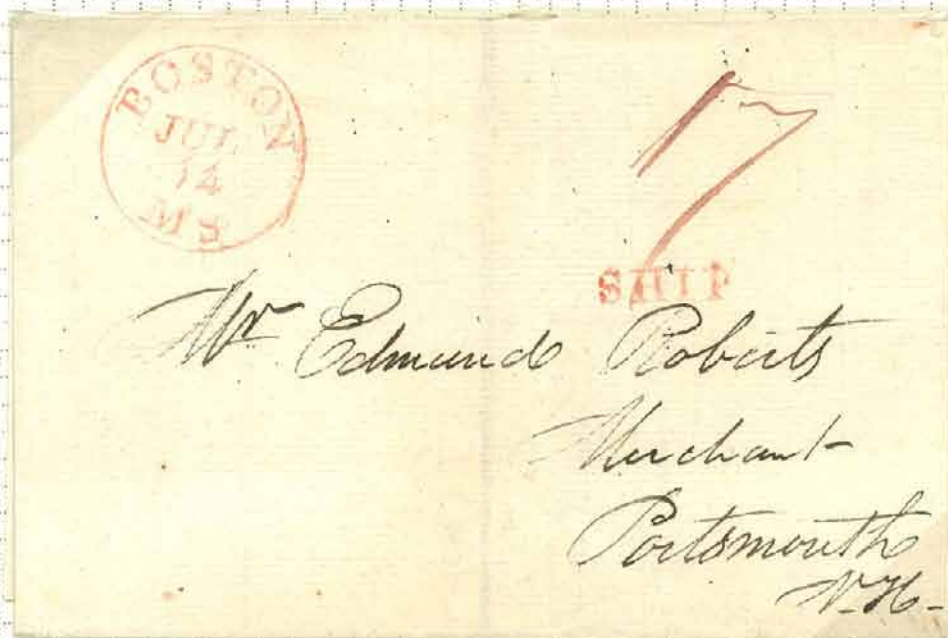 BOSTON
JUL
14
MS
17
SHIP
Mr Edmund Roberts
Merchant
Portsmouth
N.H-